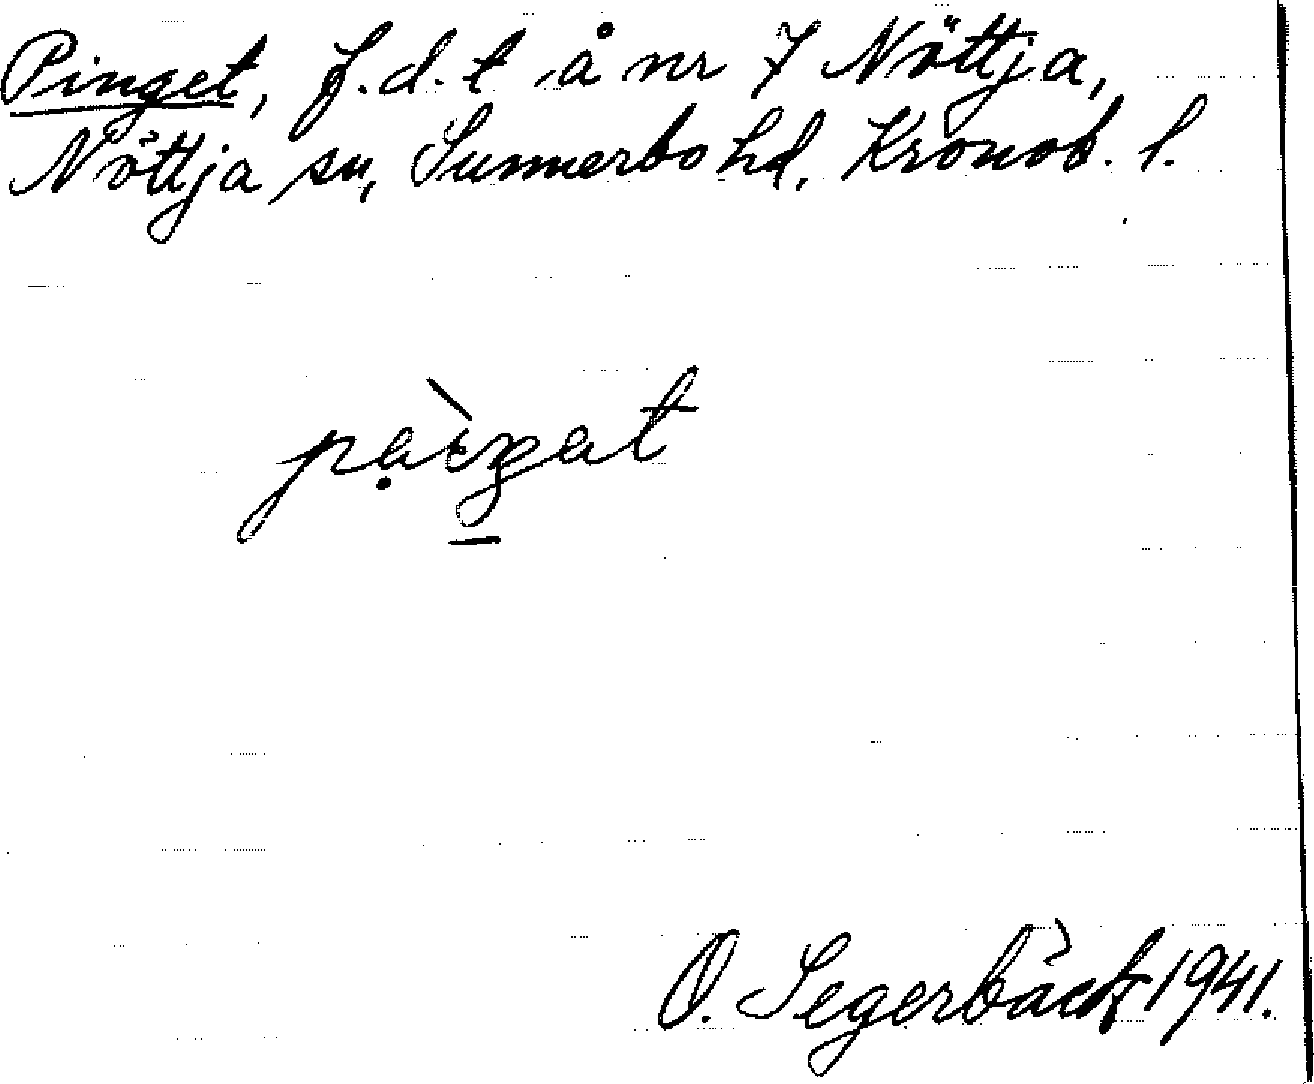 Pinget, f.d.t å nr 7 Nöttja,
Nöttja sn, Sunnerbo hd, Kronob. l.
O. Segerbäck 1941.